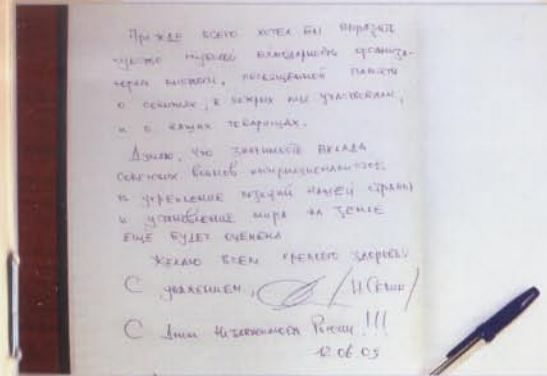 Прежде всего хотел бы выразить
чувство глубокой благодарности организа-
торам выставки, посвященной памяти
о событиях, в которых мы участвовали,
и о наших товарищах.
Думаю, что значимость вклада
советских воинов интернационалистов
в укрепление позиций нашей страны
и установление мира на земле
еще будет оценена
Желаю всем крепкого здоровья
С уважением,
С Днем Независимости России!!!
12.06.05